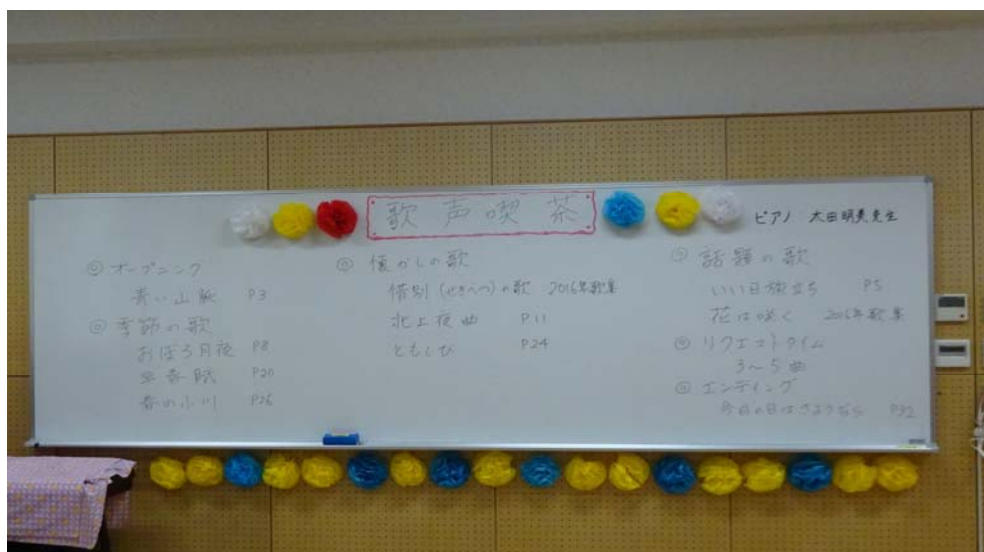 歌声喫茶
ピアノ 太田明美先生
◎ オープニング
青い山脈 P3
◎ 季節の歌
おぼろ月夜 P8
早春賦 P20
春の小川 P26
◎ 懐かしの歌
惜別(せきべつ)の歌 2016年歌集
北上夜曲 P11
ともしび P24
◎ 話題の歌
いい日旅立ち P5
花は咲く 2016年歌集
◎ リクエストタイム
3〜5曲
◎ エンディング
今日の日はさようなら P32